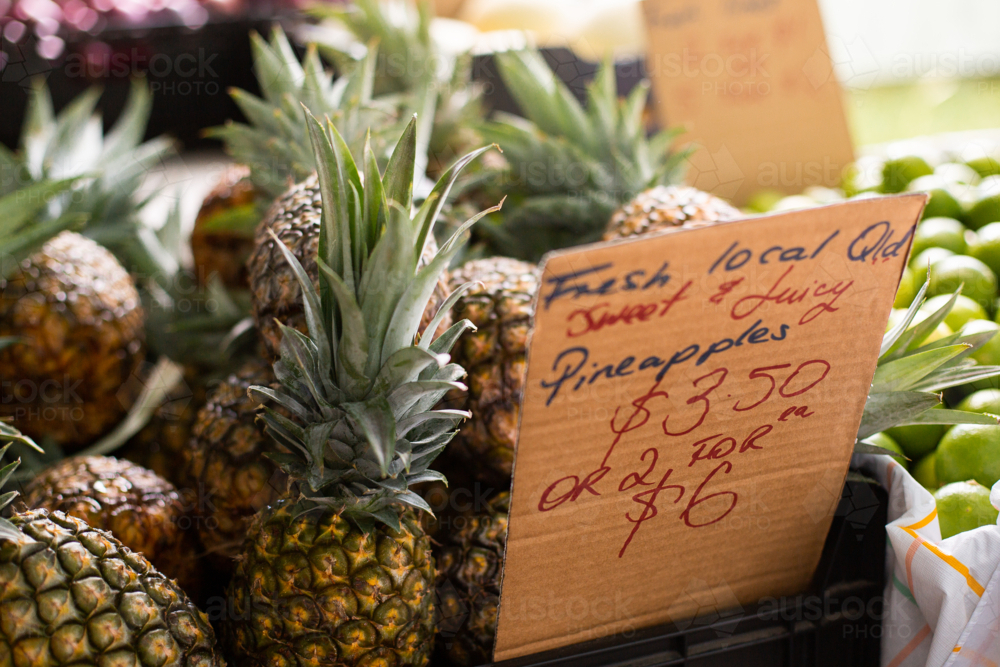 Fresh local Qld
Sweet & Juicy
Pineapples
$3.50 ea
OR 2 FOR
$6